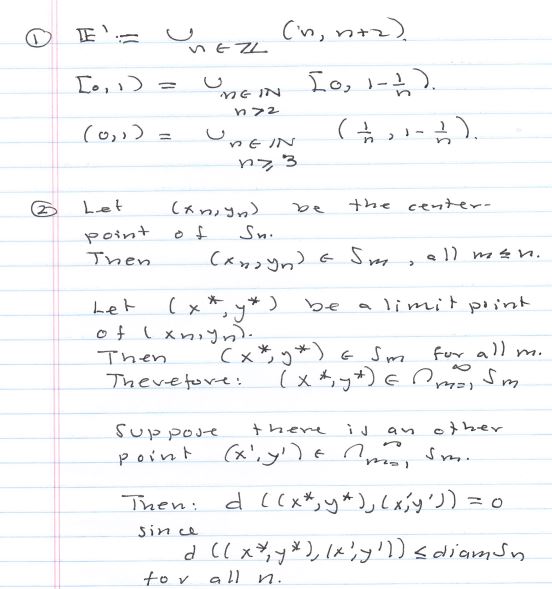 ① 𝔼¹ := ∪_{n∈ℤ} (n, n+2).
[0,1) = ∪_{n∈ℕ, n>2} [0, 1-1/n).
(0,1) = ∪_{n∈ℕ, n≥3} (1/n, 1-1/n).
② Let (xn,yn) be the center-
point of Sn.
Then (xn,yn) ∈ Sm, all m≤n.
Let (x*,y*) be a limit point
of (xn,yn).
Then (x*,y*) ∈ Sm for all m.
Therefore: (x*,y*) ∈ ∩_{m=1}^∞ Sm
Suppose there is an other
point (x',y') ∈ ∩_{m=1}^∞ Sm.
Then: d((x*,y*),(x',y')) = 0
since
d((x*,y*),(x',y')) ≤ diam Sn
for all n.